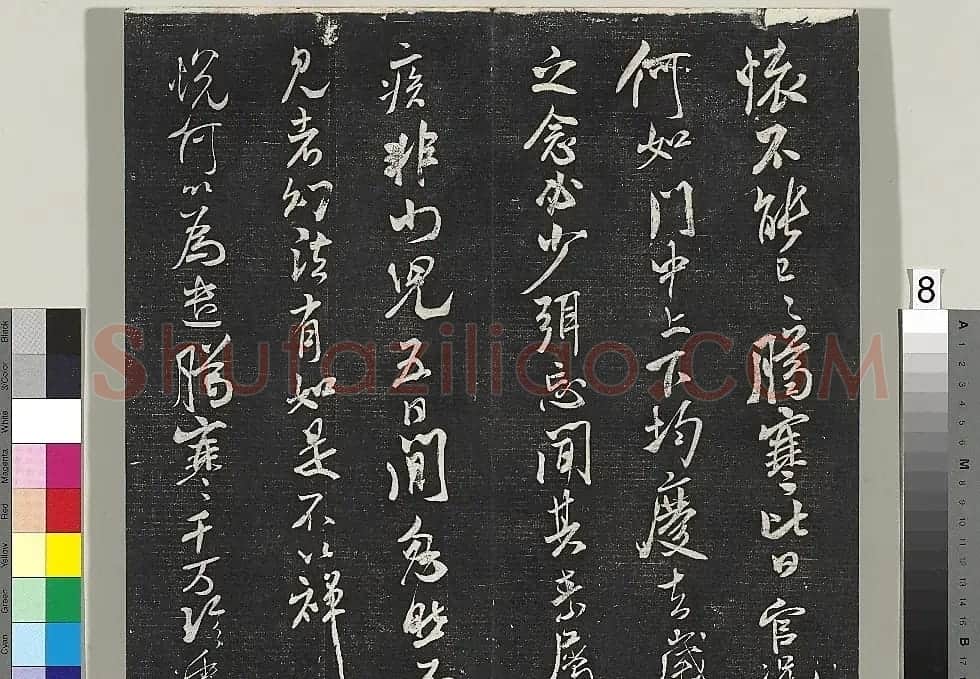 懷不能已々臘寒比日官況
何如門中上下均慶去歲
之念必少
間其素履
疾非小兒五日間忽然不
見者幻法有如是不以禪
悅何以為遣臘寒千万珍重
Shufaziliao.COM
8
A
1
2
3
4
5
6
M
8
9
10
11
12
13
14
15
B
17
Black
3/Color
White
Magenta
Red
Yellow
Green
Cyan